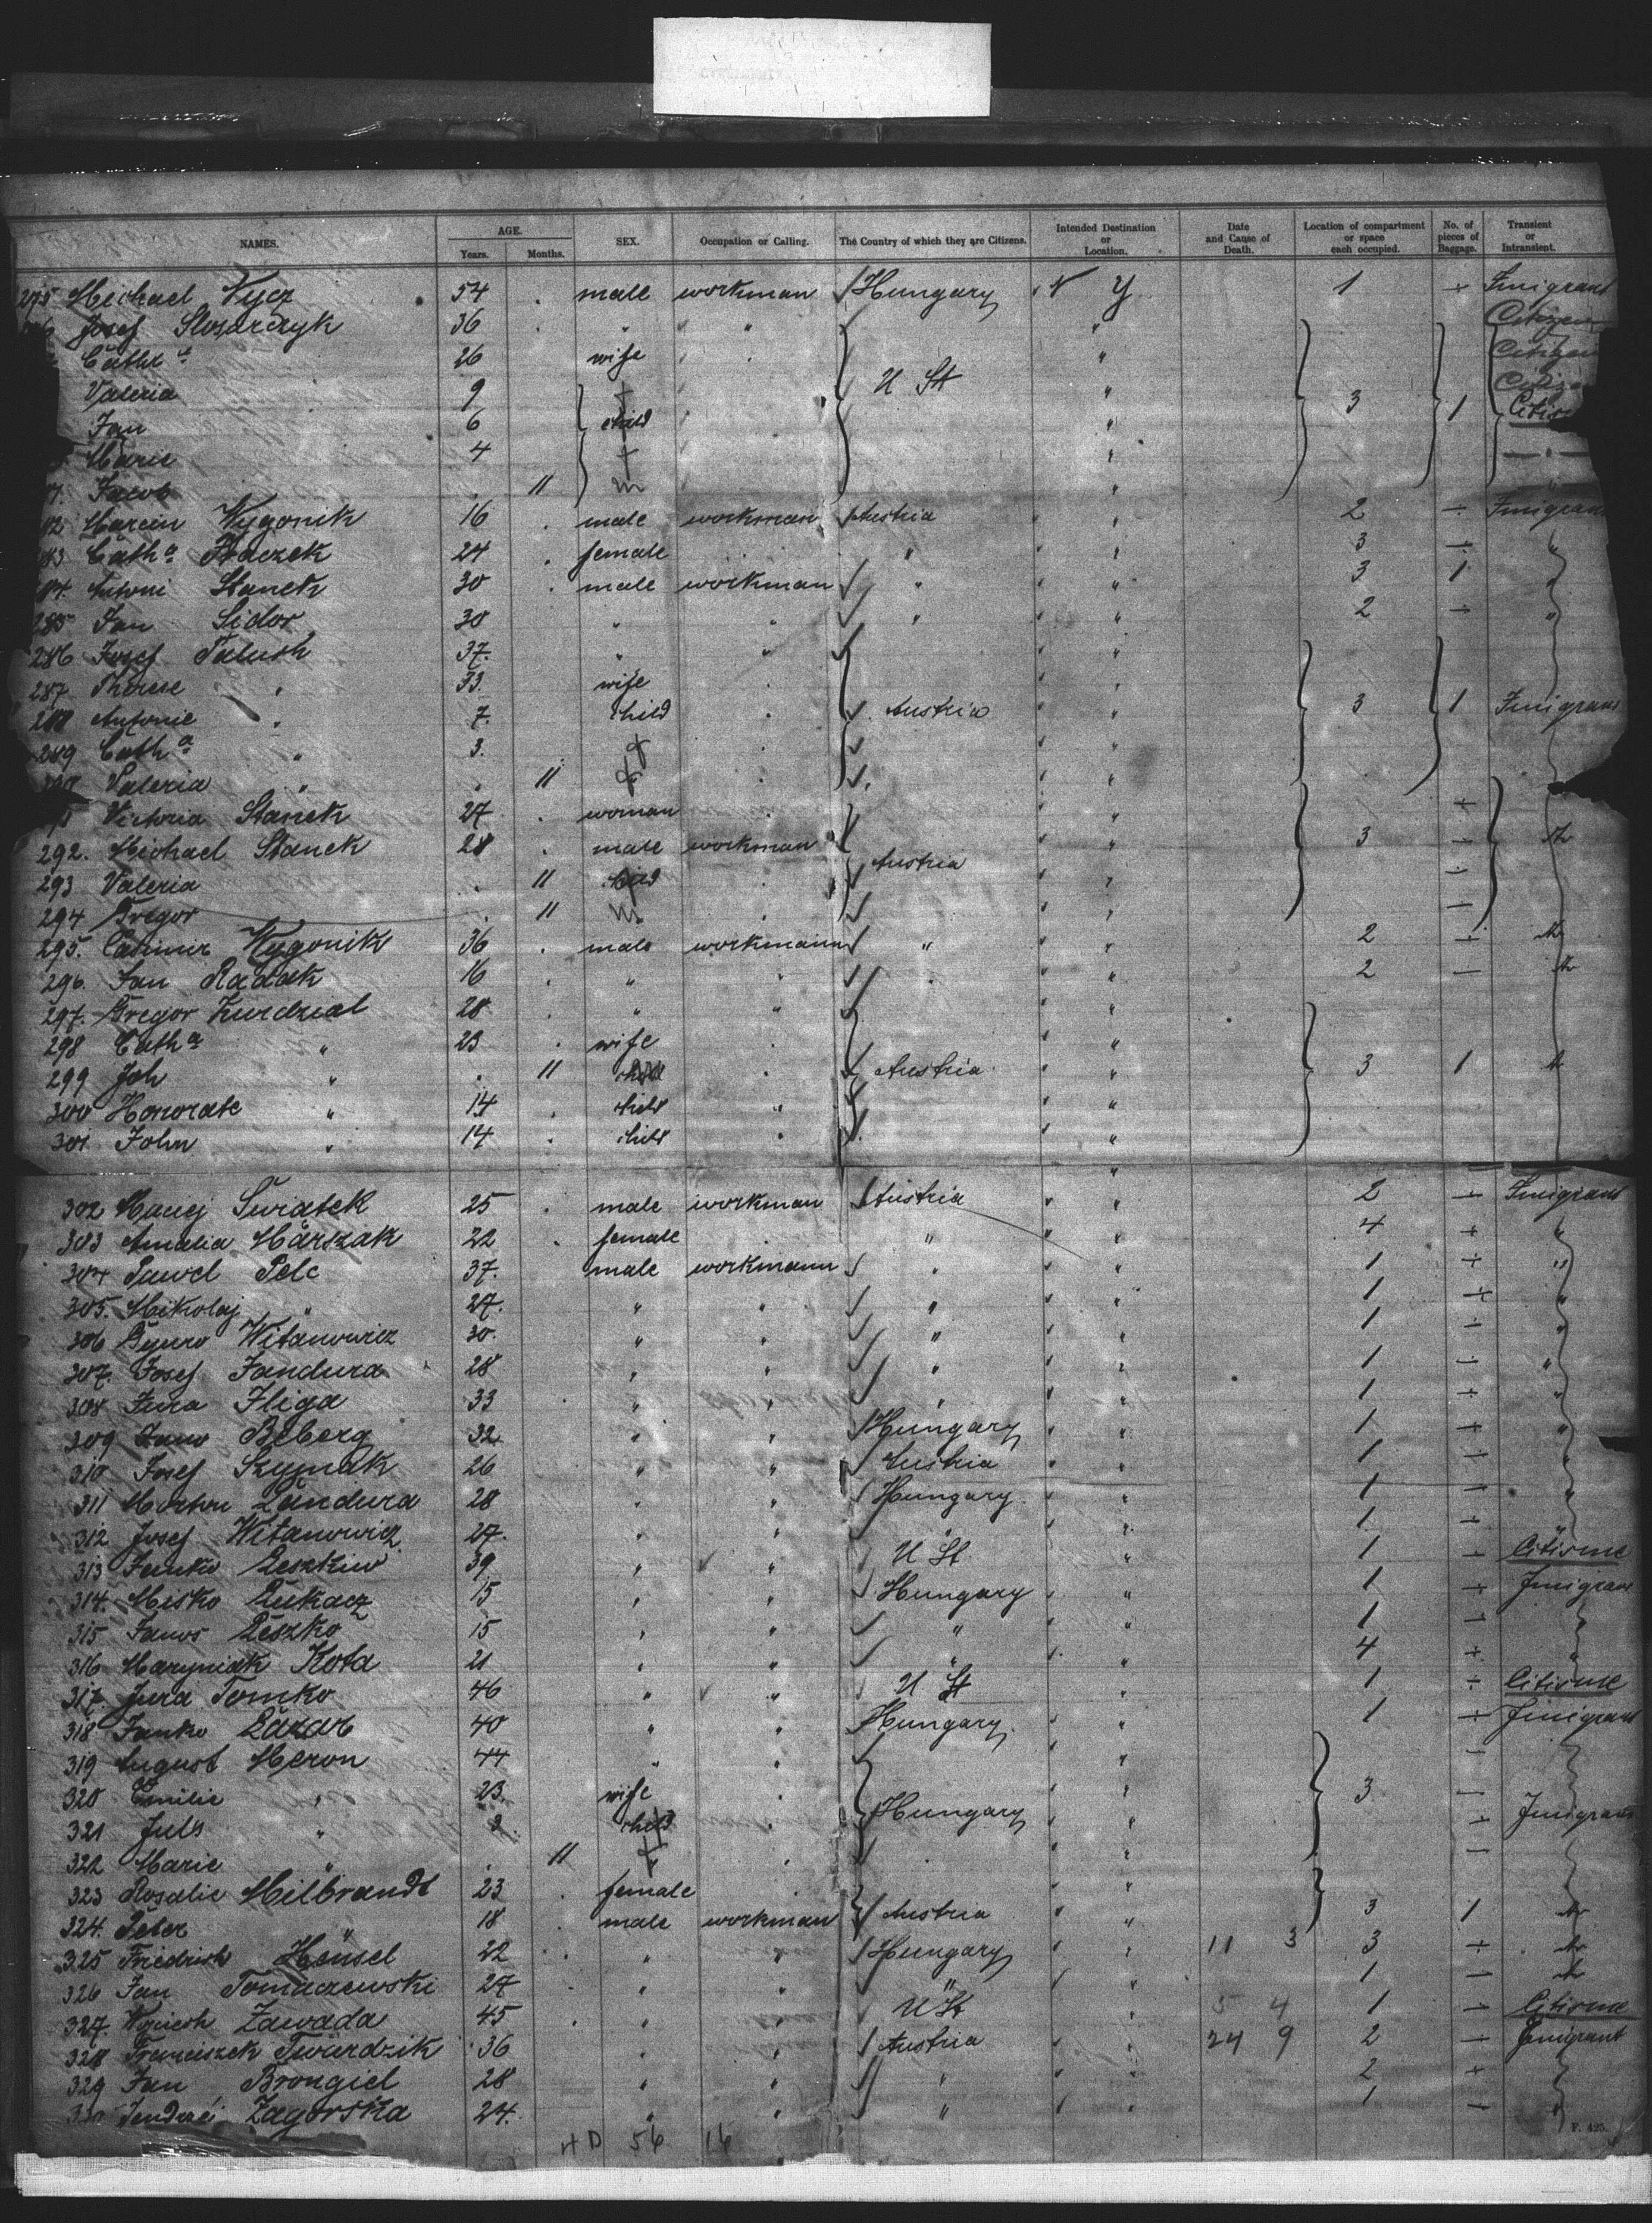 NAMES. AGE. Years. Months. SEX. Occupation or Calling. The Country of which they are Citizens. Intended Destination or Location. Date and Cause of Death. Location of compartment or space each occupied. No. of pieces of Baggage. Transient or Intransient.
275 Michael Wycz 54 male workman Hungary N Y 1 Imigrant
Josef Slosarczyk 36 " " " Citizen
Cath a 26 wife " U St " Citizen
Valeria 9 "
Jan 6 child " 3 1
Marie 4 "
Jacob 11 m "
Marcin Wygonik 16 male workman Austria " 2 Imigrant
Cath a 24 female " " 3 "
Antoni Stanek 30 male workman " " 3 1 "
285 Jan Sidor 30 " " " " 2 "
286 Josef Palush 37 " " "
287 Therese " 33 wife "
288 Antonie " 7 child Austria " 3 1 Imigrant
289 Cath a " 3 "
Valeria " 11 "
Victoria Stanek 27 woman "
292. Michael Stanek 28 male workman " 3
293 Valeria 11 Austria "
294 Gregor 11 m "
295. Casimir Wygonik 36 male workmann " " 2
296. Jan Radak 16 " " " " 2
297. Gregor Kurdzial 28 " " "
298 Cath a " 23 wife "
299 Joh " 11 Austria " 3 1
300 Honorate " 14 child "
301 John " 14 child "
302 Maciej Swiatek 25 male workman Austria " 2 Imigrant
303 Amalia Marszak 22 female " " 4 "
304 Pawel Pelc 37. male workmann " " 1 "
305. Mikolaj " 27. " " " " 1 "
306 Witanowicz 30. " " " " 1 "
307. Josef Jandura 28 " " " " 1 "
308 Jura 33 " " " " 1 "
309 32 " " Hungary " 1 "
310 Josef Szymak 26 " " Austria " 1 "
311 28 " " Hungary " 1 "
312 Josef Witanowicz 27. " " " " 1 "
313 39 " " U St " 1 Citisme
314. Misko Lukacz 15 " " Hungary " 1 Imigrant
315 Janos Leszko 15 " " " " 1 "
316 Maryniak Kota 21 " " " " 4 "
317. Jura Tomko 46 " " U St " 1 Citisme
318 Janko Lazar 40 " " Hungary " 1 Imigrant
319 August Meron 44 " " "
320 Emilie " 23. wife " 3
321 Juls " child Hungary " Imigrant
322 Marie " 11 "
323 Rosalie Milbrandt 23 female "
324. Peter " 18 male workman Austria " 3 1
325 Friedrich Hensel 22 " " Hungary " 11 3 3
326 Jan Tomaczewski 27 " " " " 1
327. Zawada 45 " " U St " 5 4 1 Citisme
328 Franciszek Twardzik 36 " " Austria " 24 9 2 Imigrant
329 Jan Brongiel 28 " " " " 2 "
Zagorska 24. " " " " 1 "
56 16